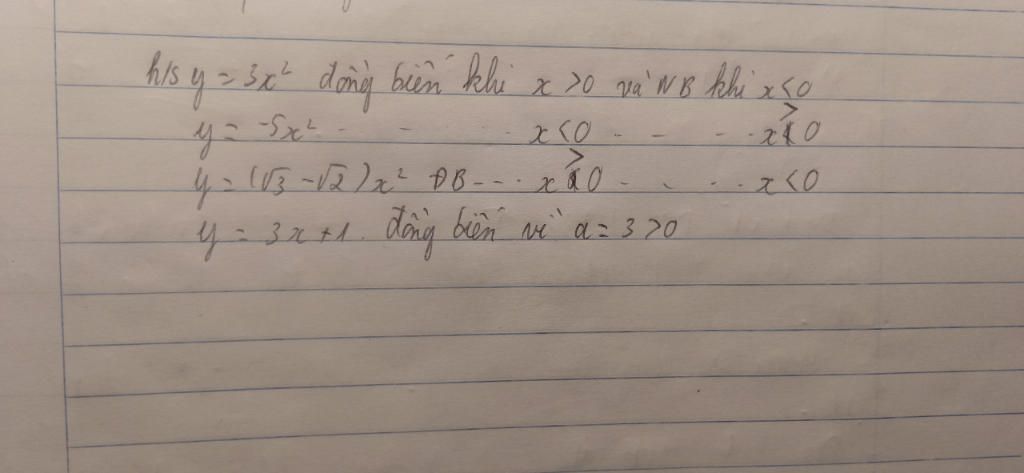 h/s y = 3x² đồng biến khi x > 0 và NB khi x < 0
y = -5x² - - - x < 0 - - - x > 0
y = (√3 - √2)x² ĐB - - - x > 0 - - - x < 0
y = 3x + 1. đồng biến vì a = 3 > 0